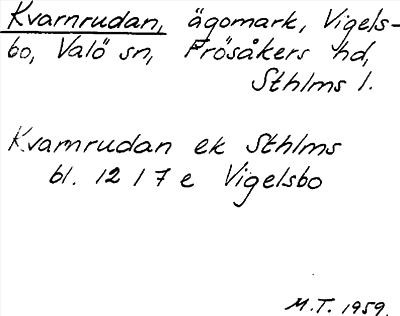 Kvarnrudan, ägomark, Vigels-
bo, Valö sn, Frösåkers hd,
Sthlms l.
Kvarnrudan ek Sthlms
bl. 12 I 7 e Vigelsbo
M.T. 1959.